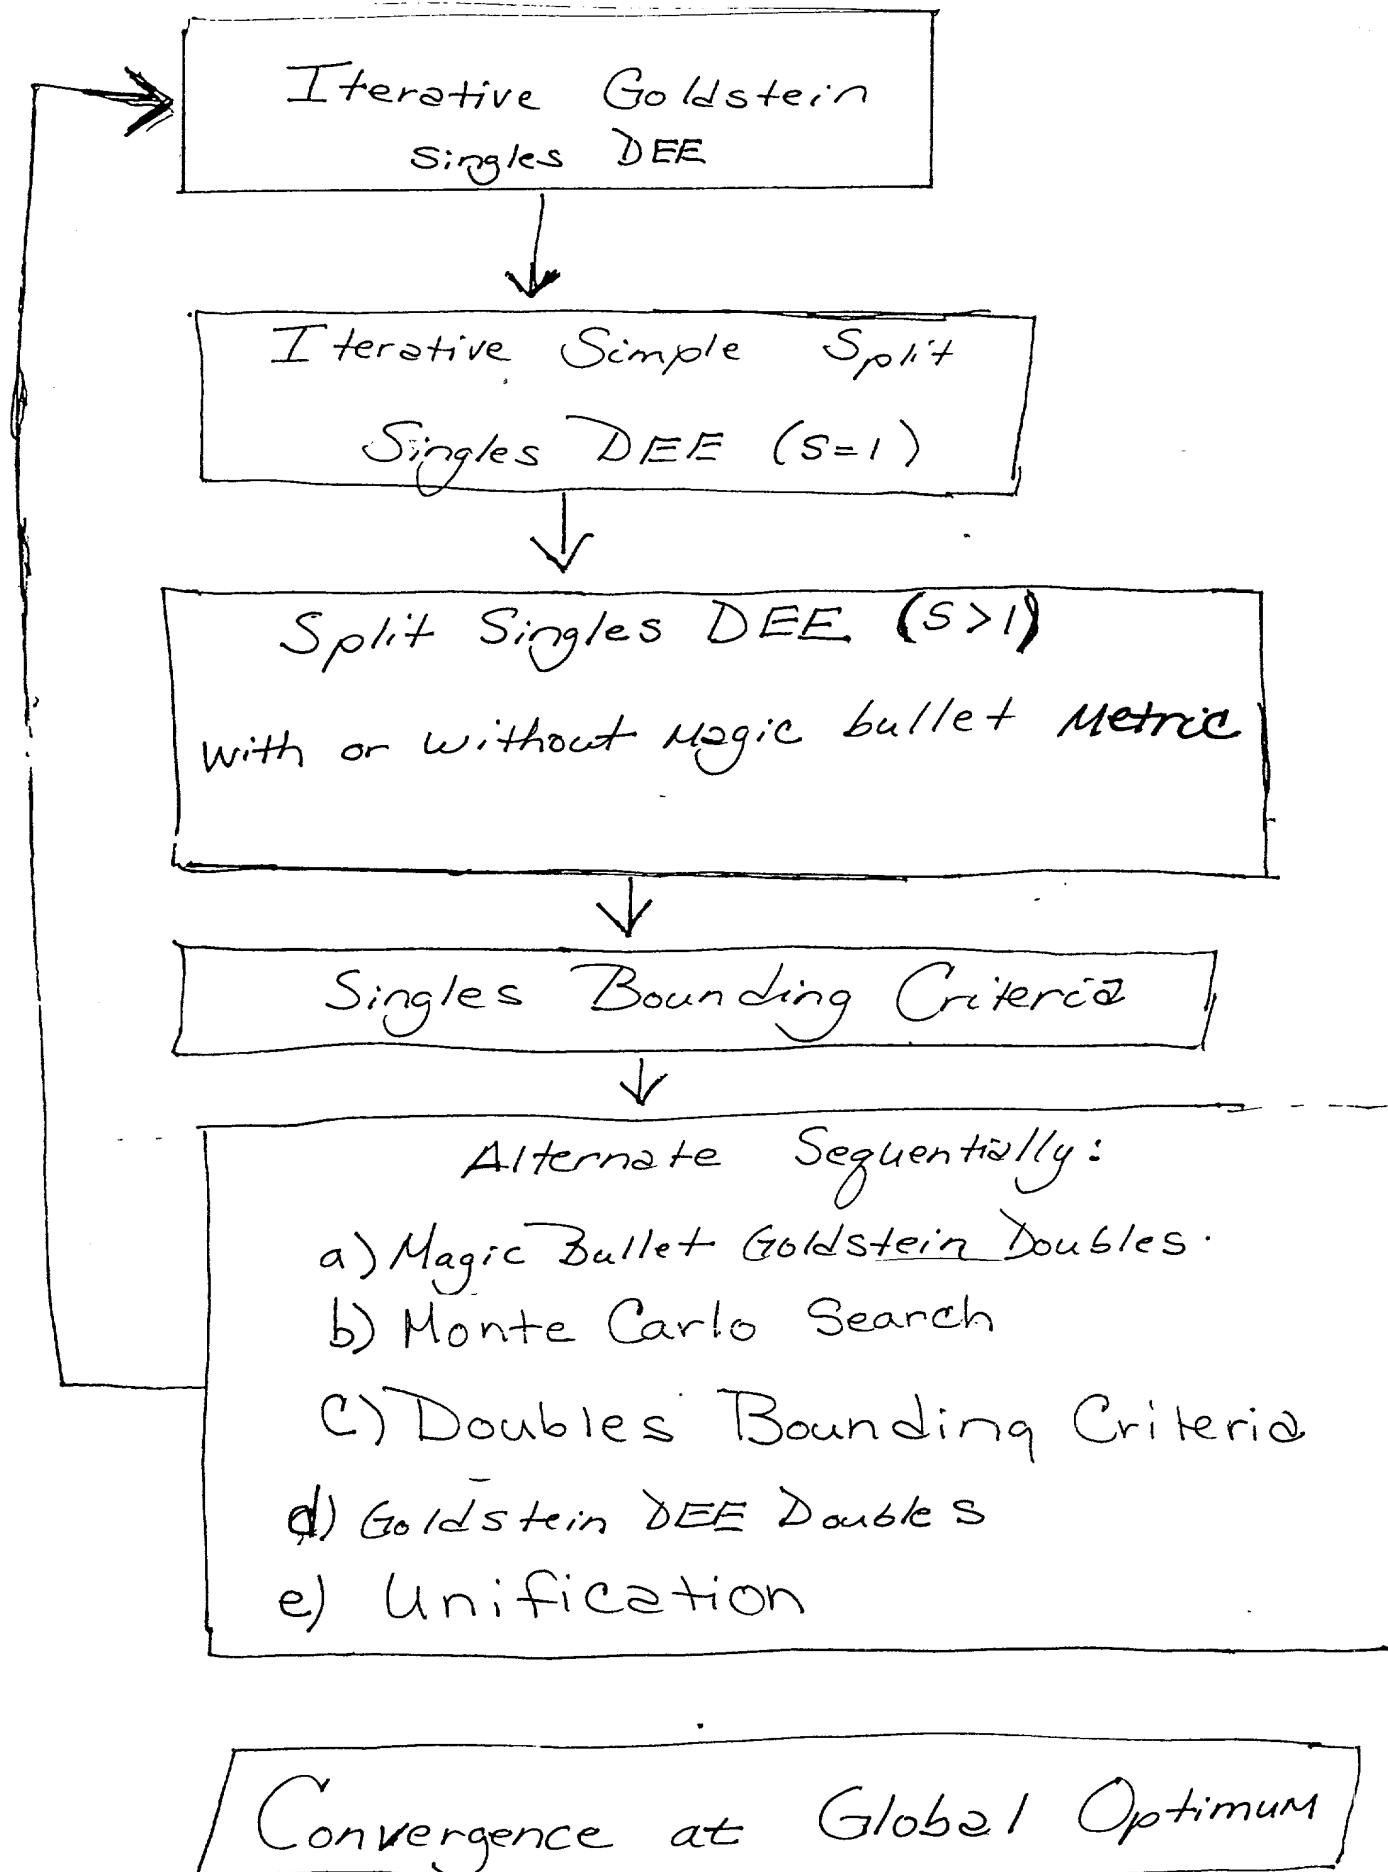 Iterative Goldstein
Singles DEE
Iterative Simple Split
Singles DEE (S=1)
Split Singles DEE (S>1)
With or without Magic bullet Metric
Singles Bounding Criteria
Alternate Sequentially:
a) Magic Bullet Goldstein Doubles.
b) Monte Carlo Search
C) Doubles Bounding Criteria
d) Goldstein DEE Doubles
e) Unification
Convergence at Global Optimum